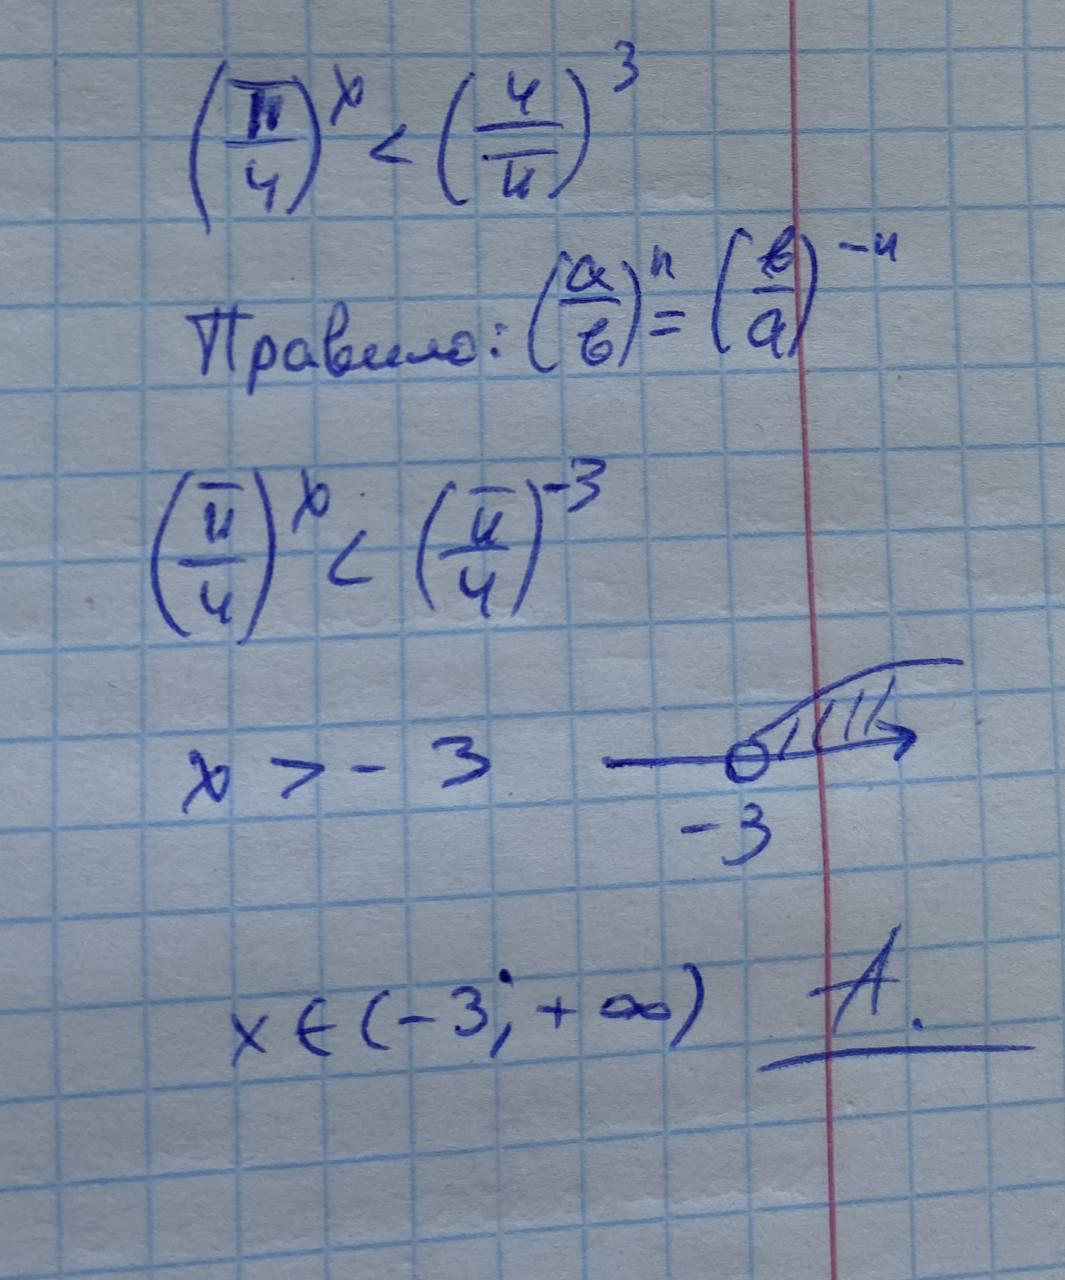 (π/4)^x < (4/π)^3
Правило: (a/b)^n = (b/a)^-n
(π/4)^x < (π/4)^-3
x > - 3
-3
x ∈ (-3; +∞) A.